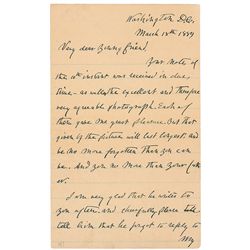 Washington D.C.
March 18th 1889
Very dear young friend,
Your note of
the 10th instant was received in due
time - as well the excellent and therefore
very agreeable photograph. Each of
them gave me great pleasure. But that
given by the picture will last longest and
be no more forgotten than you can
be. And you no more than your father
I am very glad that he writes to
you often, and cheerfully please tell
him that he forgot to reply to
my